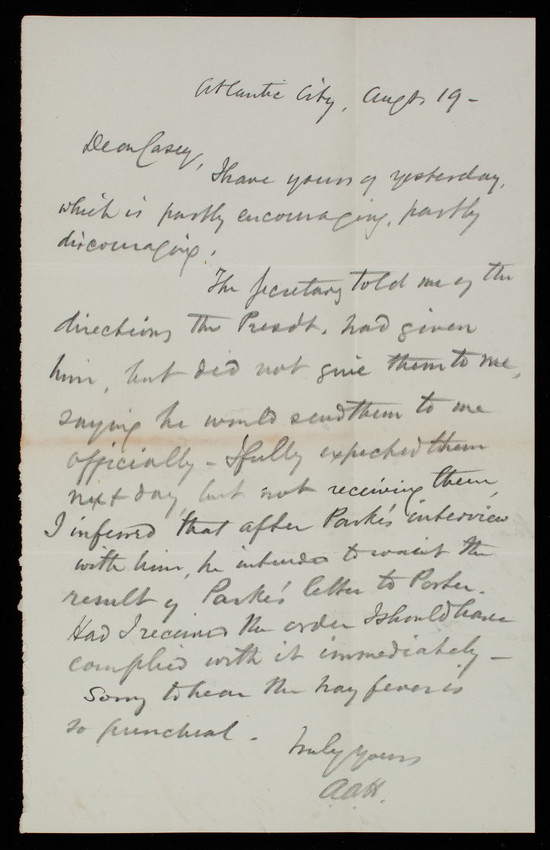 Atlantic City, Augt 19 -
Dear Casey,
I have yours of yesterday,
which is partly encouraging, partly
discouraging.
The Secretary told me of the
directions the Presdt. had given
him, but did not give them to me,
saying he would send them to me
officially - I fully expected them
next day, but not receiving them,
I inferred that after Parke's interview
with him, he intended to await the
result of Parke's letter to Porter.
Had I received the order I should have
complied with it immediately -
Sorry to hear the hay fever is
so punctual.
Truly yours
A.A.H.